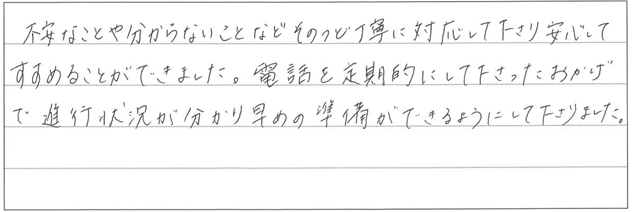 不安なことや分からないことなどそのつど丁寧に対応して下さり安心して
すすめることができました。電話を定期的にして下さったおかげ
で進行状況が分かり早めの準備ができるようにして下さりました。